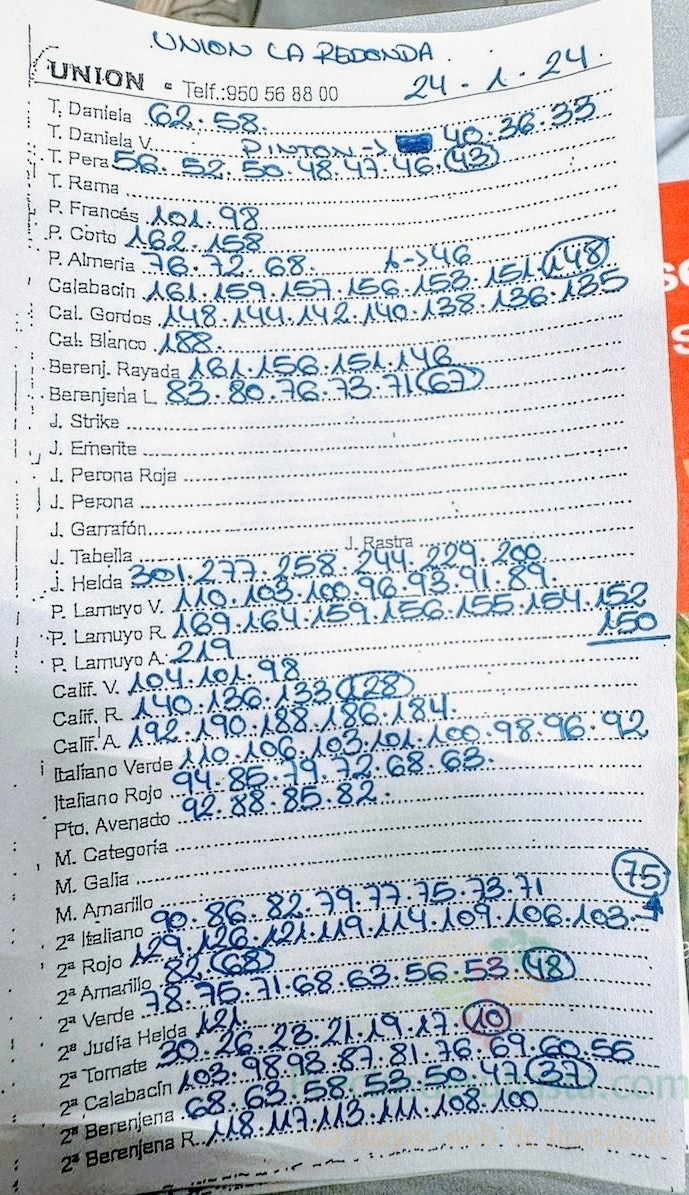 UNION LA REDONDA.
UNION Telf.:950 56 88 00 24-1-24.
T. Daniela 62.58.
T. Daniela V. PINTON-> 40.36.33
T. Pera 56.52.50.48.47.46.43
T. Rama
P. Francés 101.98
P. Corto 162.158
P. Almería 76.72.68. 1->46
Calabacín 161.159.157.156.153.151.148
Cal. Gordos 148.144.142.140.138.136.135
Cal. Blanco 188
Berenj. Rayada 161.156.151.146
Berenjena L. 83.80.76.73.71.67
J. Strike
J. Emerite
J. Perona Roja
J. Perona
J. Garrafón
J. Tabella J. Rastra
J. Helda 301.277.258.244.229.200
P. Lamuyo V. 110.103.100.96.93.91.89.
P. Lamuyo R. 169.164.159.156.155.154.152
150
P. Lamuyo A. 219
Calif. V. 104.101.98
Calif. R. 140.136.133.128
Calif. A. 192.190.188.186.184.
Italiano Verde 110.106.103.101.100.98.96.92
Italiano Rojo 94.85.79.72.68.63.
Pto. Avenado 92.88.85.82.
M. Categoría
M. Galia
M. Amarillo 75
2ª Italiano 90.86.82.79.77.75.73.71
2ª Rojo 129.126.121.119.114.109.106.103.
2ª Amarillo 82.68
2ª Verde 78.75.71.68.63.56.53.48
2ª Judía Helda 121
2ª Tomate 30.26.23.21.19.17.10
2ª Calabacín 103.98.93.87.81.76.69.60.55
2ª Berenjena 68.63.58.53.50.47.37
2ª Berenjena R. 118.117.113.111.108.100
.com
La mayor web de hortalizas